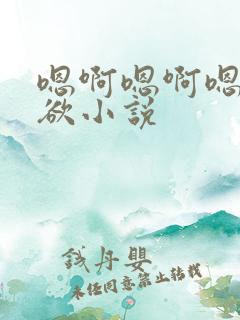 嗯啊嗯啊嗯
欲小说
钱丹婴
未经同意禁止转载